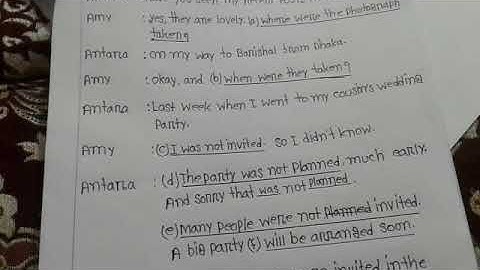 Amy : yes, they are lovely. (a) where were the photograph
taken?
Antara : on my way to Barishal from Dhaka.
Amy : okay. and (b) when were they taken?
Antara : Last week when I went to my cousin's wedding
Party.
Amy : (c) I was not invited. so I didn't know.
Antara : (d) The party was not planned. much early.
And sorry that was not planned.
(e) Many people were not planned invited.
A big party (f) will be arranged soon.
invited in the